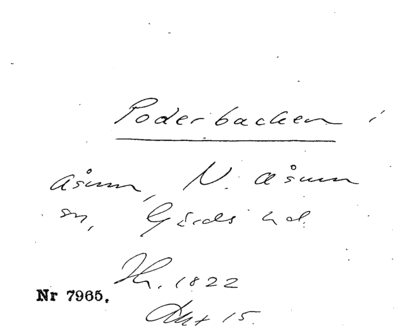 Poderbacken i
Åsum, N. Åsum
sn, Gärds hd.
Hr. 1822
Nr 7965.
Akt 15.